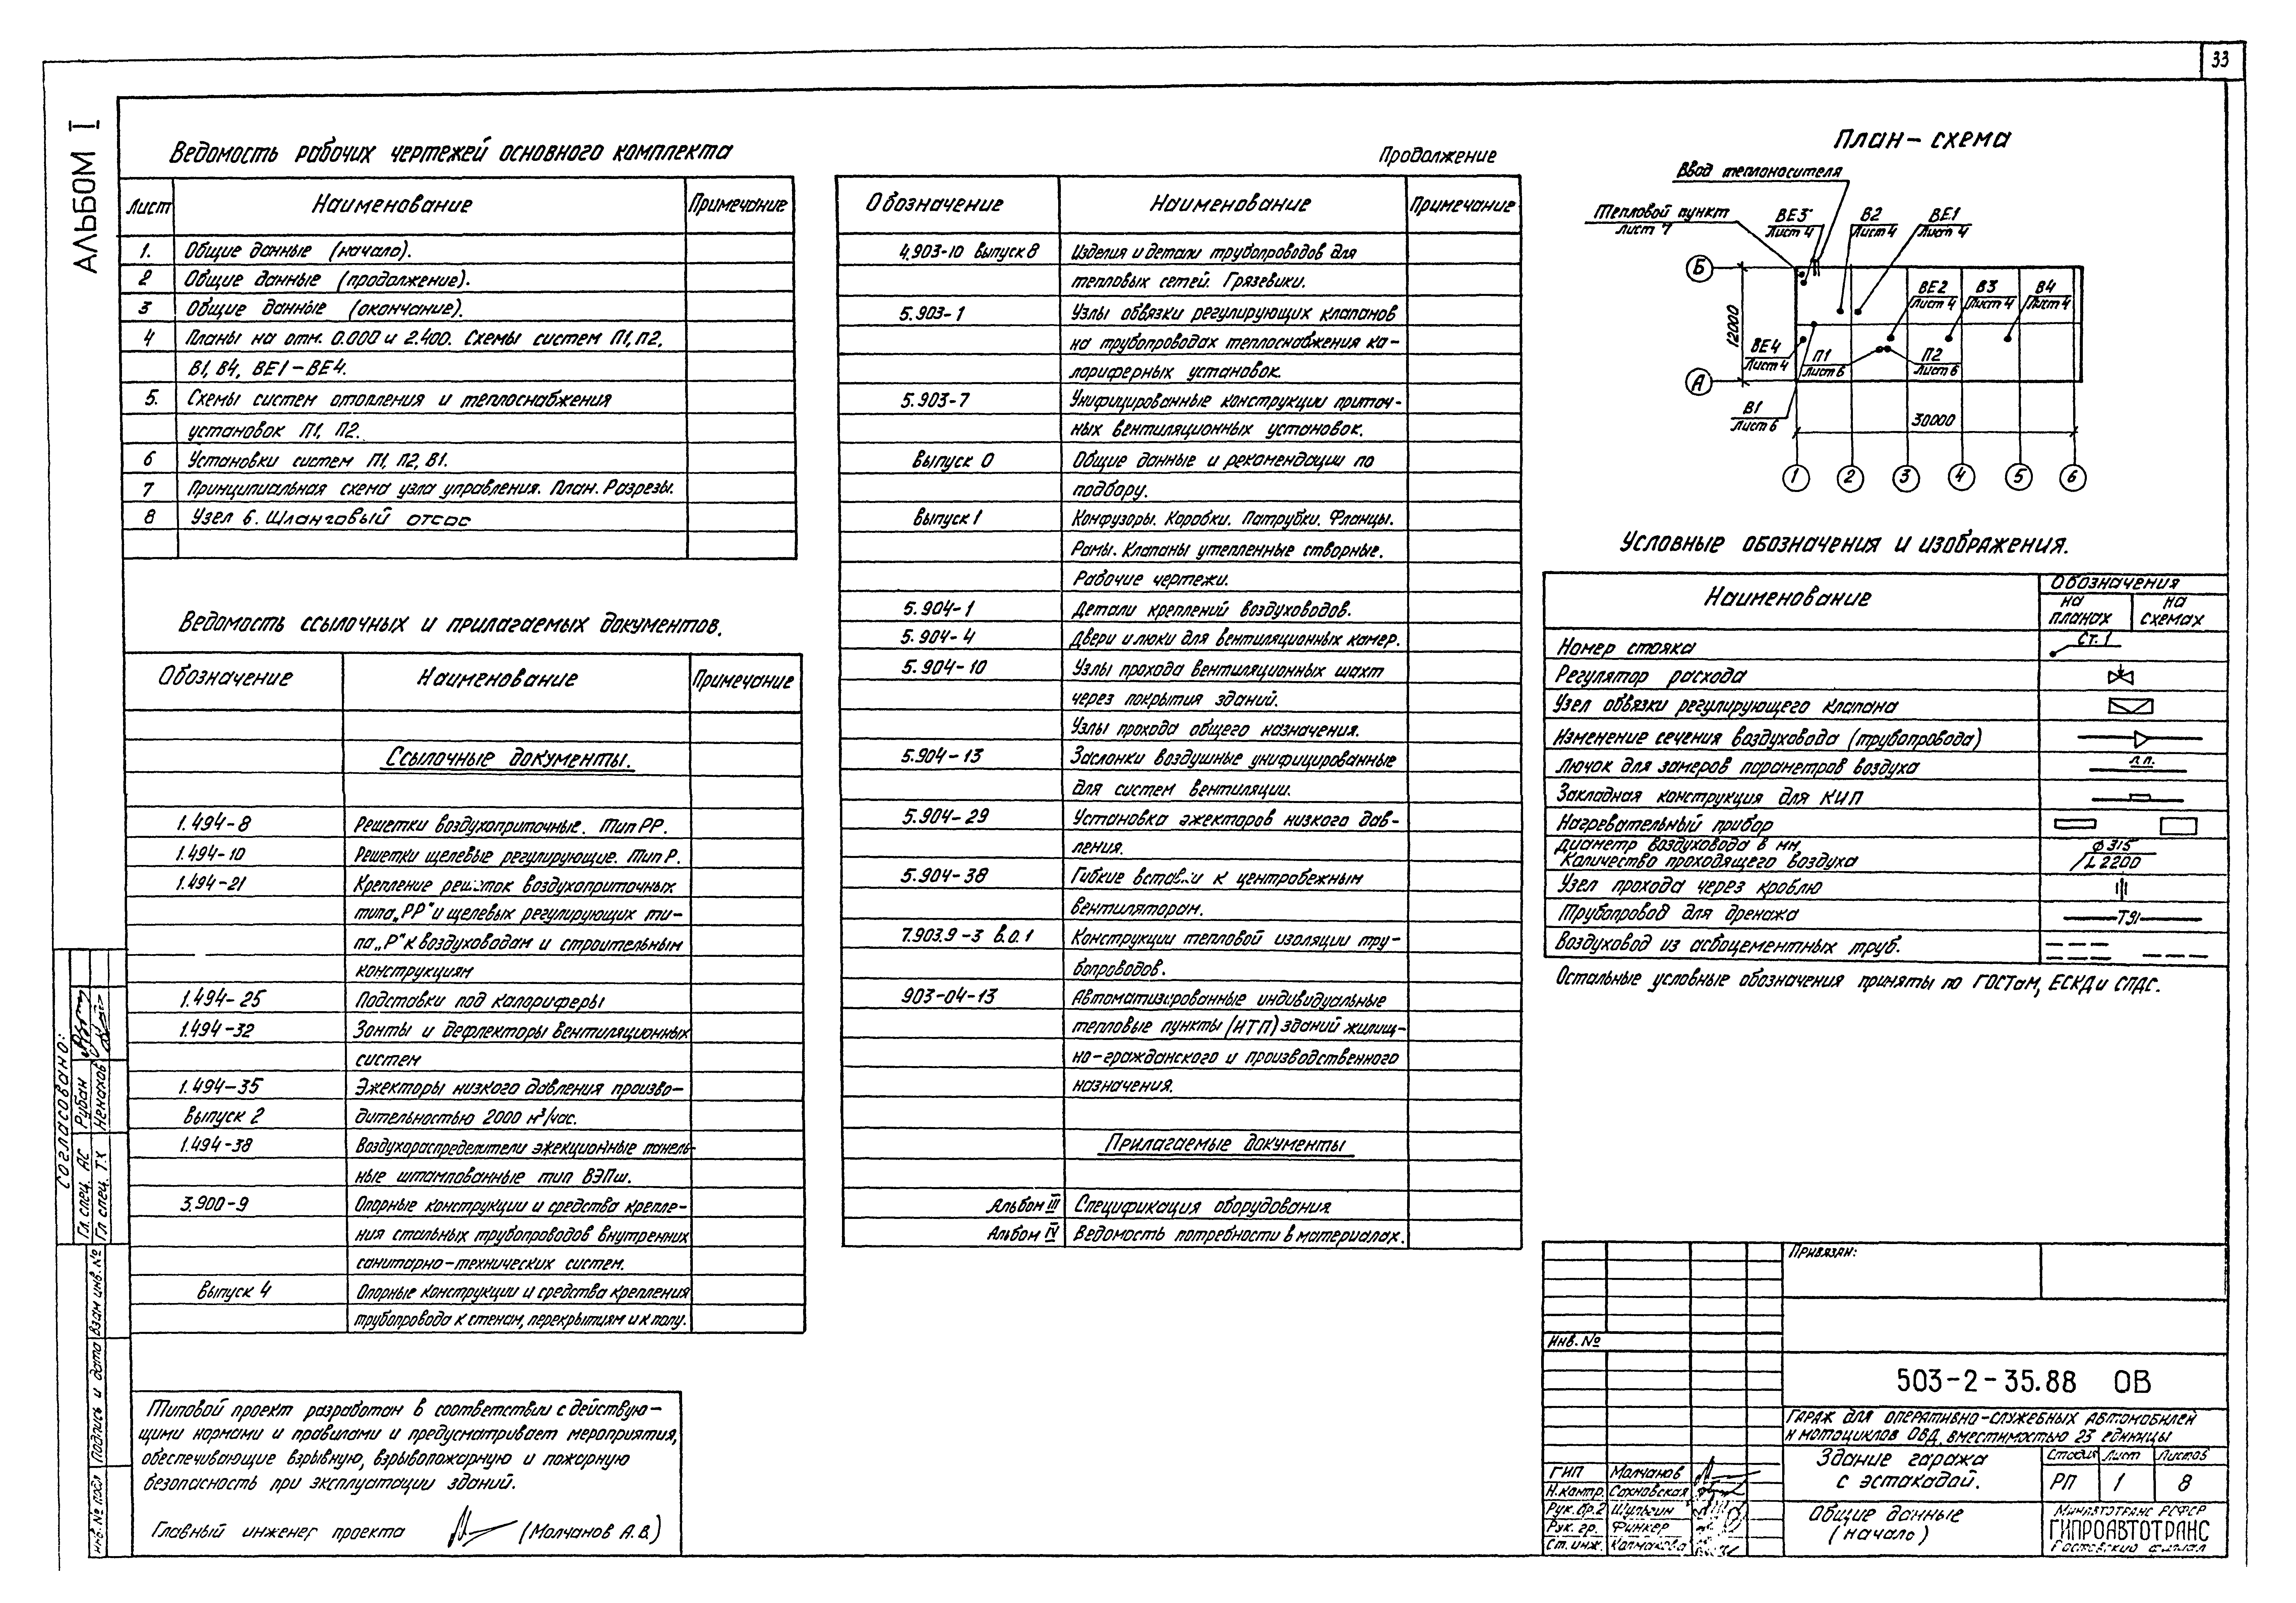 33
АЛЬБОМ I
Ведомость рабочих чертежей основного комплекта
Лист Наименование Примечание
1. Общие данные (начало).
2 Общие данные (продолжение).
3 Общие данные (окончание).
4 Планы на отм. 0.000 и 2.400. Схемы систем П1, П2,
В1, В4, ВЕ1-ВЕ4.
5. Схемы систем отопления и теплоснабжения
установок П1, П2.
6 Установки систем П1, П2, В1.
7 Принципиальная схема узла управления. План. Разрезы.
8 Узел 6. Шланговый отсос
Ведомость ссылочных и прилагаемых документов.
Обозначение Наименование Примечание
Ссылочные документы.
1.494-8 Решетки воздухоприточные. Тип РР.
1.494-10 Решетки щелевые регулирующие. Тип Р.
1.494-21 Крепление решеток воздухоприточных
типа „РР" и щелевых регулирующих ти-
па „Р" к воздуховодам и строительным
конструкциям
1.494-25 Подставки под калориферы
1.494-32 Зонты и дефлекторы вентиляционных
систем
1.494-35 Эжекторы низкого давления произво-
выпуск 2 дительностью 2000 м³/час.
1.494-38 Воздухораспределители эжекционные панель-
ные штампованные тип ВЭПш.
3.900-9 Опорные конструкции и средства крепле-
ния стальных трубопроводов внутренних
санитарно-технических систем.
Выпуск 4 Опорные конструкции и средства крепления
трубопровода к стенам, перекрытиям и к полу.
Типовой проект разработан в соответствии с действую-
щими нормами и правилами и предусматривает мероприятия,
обеспечивающие взрывную, взрывопожарную и пожарную
безопасность при эксплуатации зданий.
Главный инженер проекта (Молчанов А.В.)
Продолжение
Обозначение Наименование Примечание
4.903-10 выпуск 8 Изделия и детали трубопроводов для
тепловых сетей. Грязевики.
5.903-1 Узлы обвязки регулирующих клапанов
на трубопроводах теплоснабжения ка-
лориферных установок.
5.903-7 Унифицированные конструкции приточ-
ных вентиляционных установок.
Выпуск 0 Общие данные и рекомендации по
подбору.
Выпуск 1 Конфузоры. Коробки. Патрубки. Фланцы.
Рамы. Клапаны утепленные створные.
Рабочие чертежи.
5.904-1 Детали креплений воздуховодов.
5.904-4 Двери и люки для вентиляционных камер.
5.904-10 Узлы прохода вентиляционных шахт
через покрытия зданий.
Узлы прохода общего назначения.
5.904-13 Заслонки воздушные унифицированные
для систем вентиляции.
5.904-29 Установка эжекторов низкого дав-
ления.
5.904-38 Гибкие вставки к центробежным
вентиляторам.
7.903.9-3 в.0.1 Конструкции тепловой изоляции тру-
бопроводов.
903-04-13 Автоматизированные индивидуальные
тепловые пункты (ИТП) зданий жилищ-
но-гражданского и производственного
назначения.
Прилагаемые документы
Альбом III Спецификация оборудования
Альбом IV Ведомость потребности в материалах.
План-схема
Ввод теплоносителя
Тепловой пункт
Лист 7
ВЕ3 В2 ВЕ1
Лист 4 Лист 4 Лист 4
Б
ВЕ2 В3 В4
Лист 4 Лист 4 Лист 4
12000
ВЕ4 П1 П2
Лист 4 Лист 6 Лист 6
А
В1
Лист 6
30000
1 2 3 4 5 6
Условные обозначения и изображения.
Наименование Обозначения
на планах на схемах
Номер стояка Ст. 1
Регулятор расхода
Узел обвязки регулирующего клапана
Изменение сечения воздуховода (трубопровода)
Лючок для замеров параметров воздуха л.п.
Закладная конструкция для КИП
Нагревательный прибор
Диаметр воздуховода в мм. ф315
Количество проходящего воздуха L2200
Узел прохода через кровлю
Трубопровод для дренажа Т91
Воздуховод из асбоцементных труб.
Остальные условные обозначения приняты по ГОСТам, ЕСКД и СПДС.
Привязан:
Инв. №
503-2-35.88 ОВ
Гараж для оперативно-служебных автомобилей
и мотоциклов ОВД, вместимостью 23 единицы
Здание гаража
с эстакадой.
Стадия Лист Листов
РП 1 8
Общие данные
(начало)
Минавтотранс РСФСР
ГИПРОАВТОТРАНС
Ростовский филиал
ГИП Молчанов
Н.контр. Сахновская
Рук. бр.2 Шульгин
Рук. гр. Финкер
Ст. инж. Колмакова
Согласовано:
Гл. спец. АС Рубан
Гл. спец. ТХ Ненахов
Взам инв. №
Подпись и дата
Инв. № подл